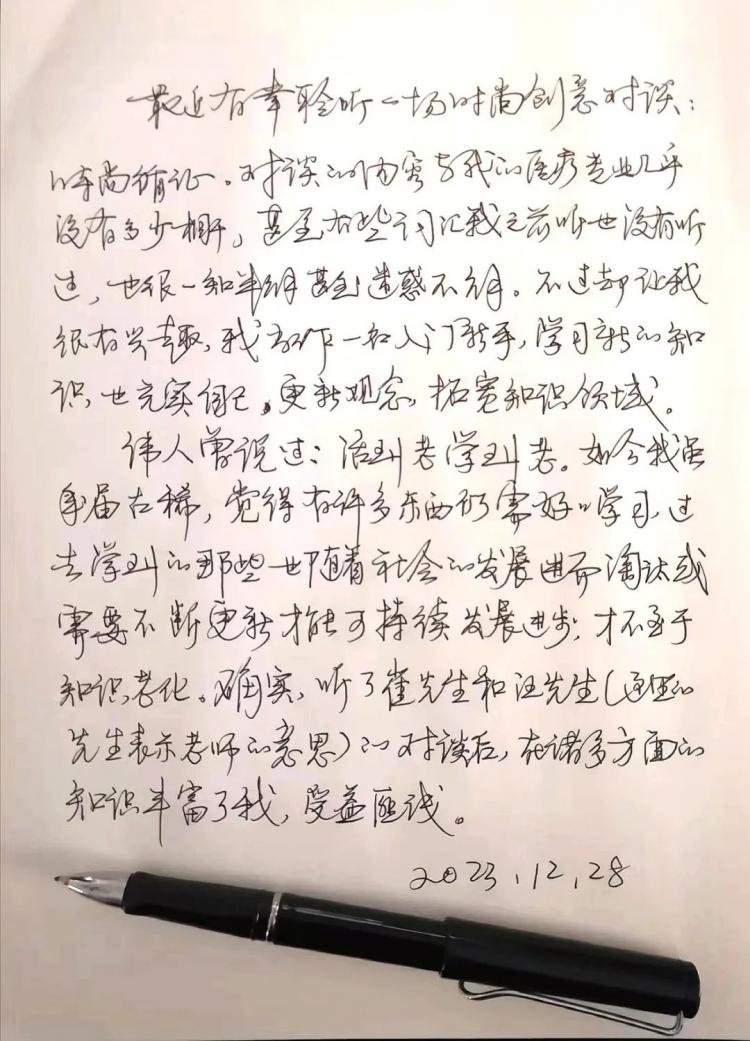 最近有幸聆听一场时尚创意对谈：
时尚循证。对谈的内容与我的医疗专业几乎
没有多少相干，甚至有些词汇我之前听也没有听
过，也很一知半解甚至迷惑不解。不过却让我
很有兴趣，我权作一名入门新手，学习新的知
识，也充实自己，更新观念，拓宽知识领域。
伟人曾说过：活到老学到老。如今我虽
年届古稀，觉得有许多东西仍需好好学习，过
去学到的那些也随着社会的发展进而淘汰或
需要不断更新才能可持续发展进步，才不至于
知识老化。确实，听了崔先生和汪先生（这里的
先生表示老师的意思）的对谈后，在诸多方面的
知识丰富了我，受益匪浅。
2023.12.28